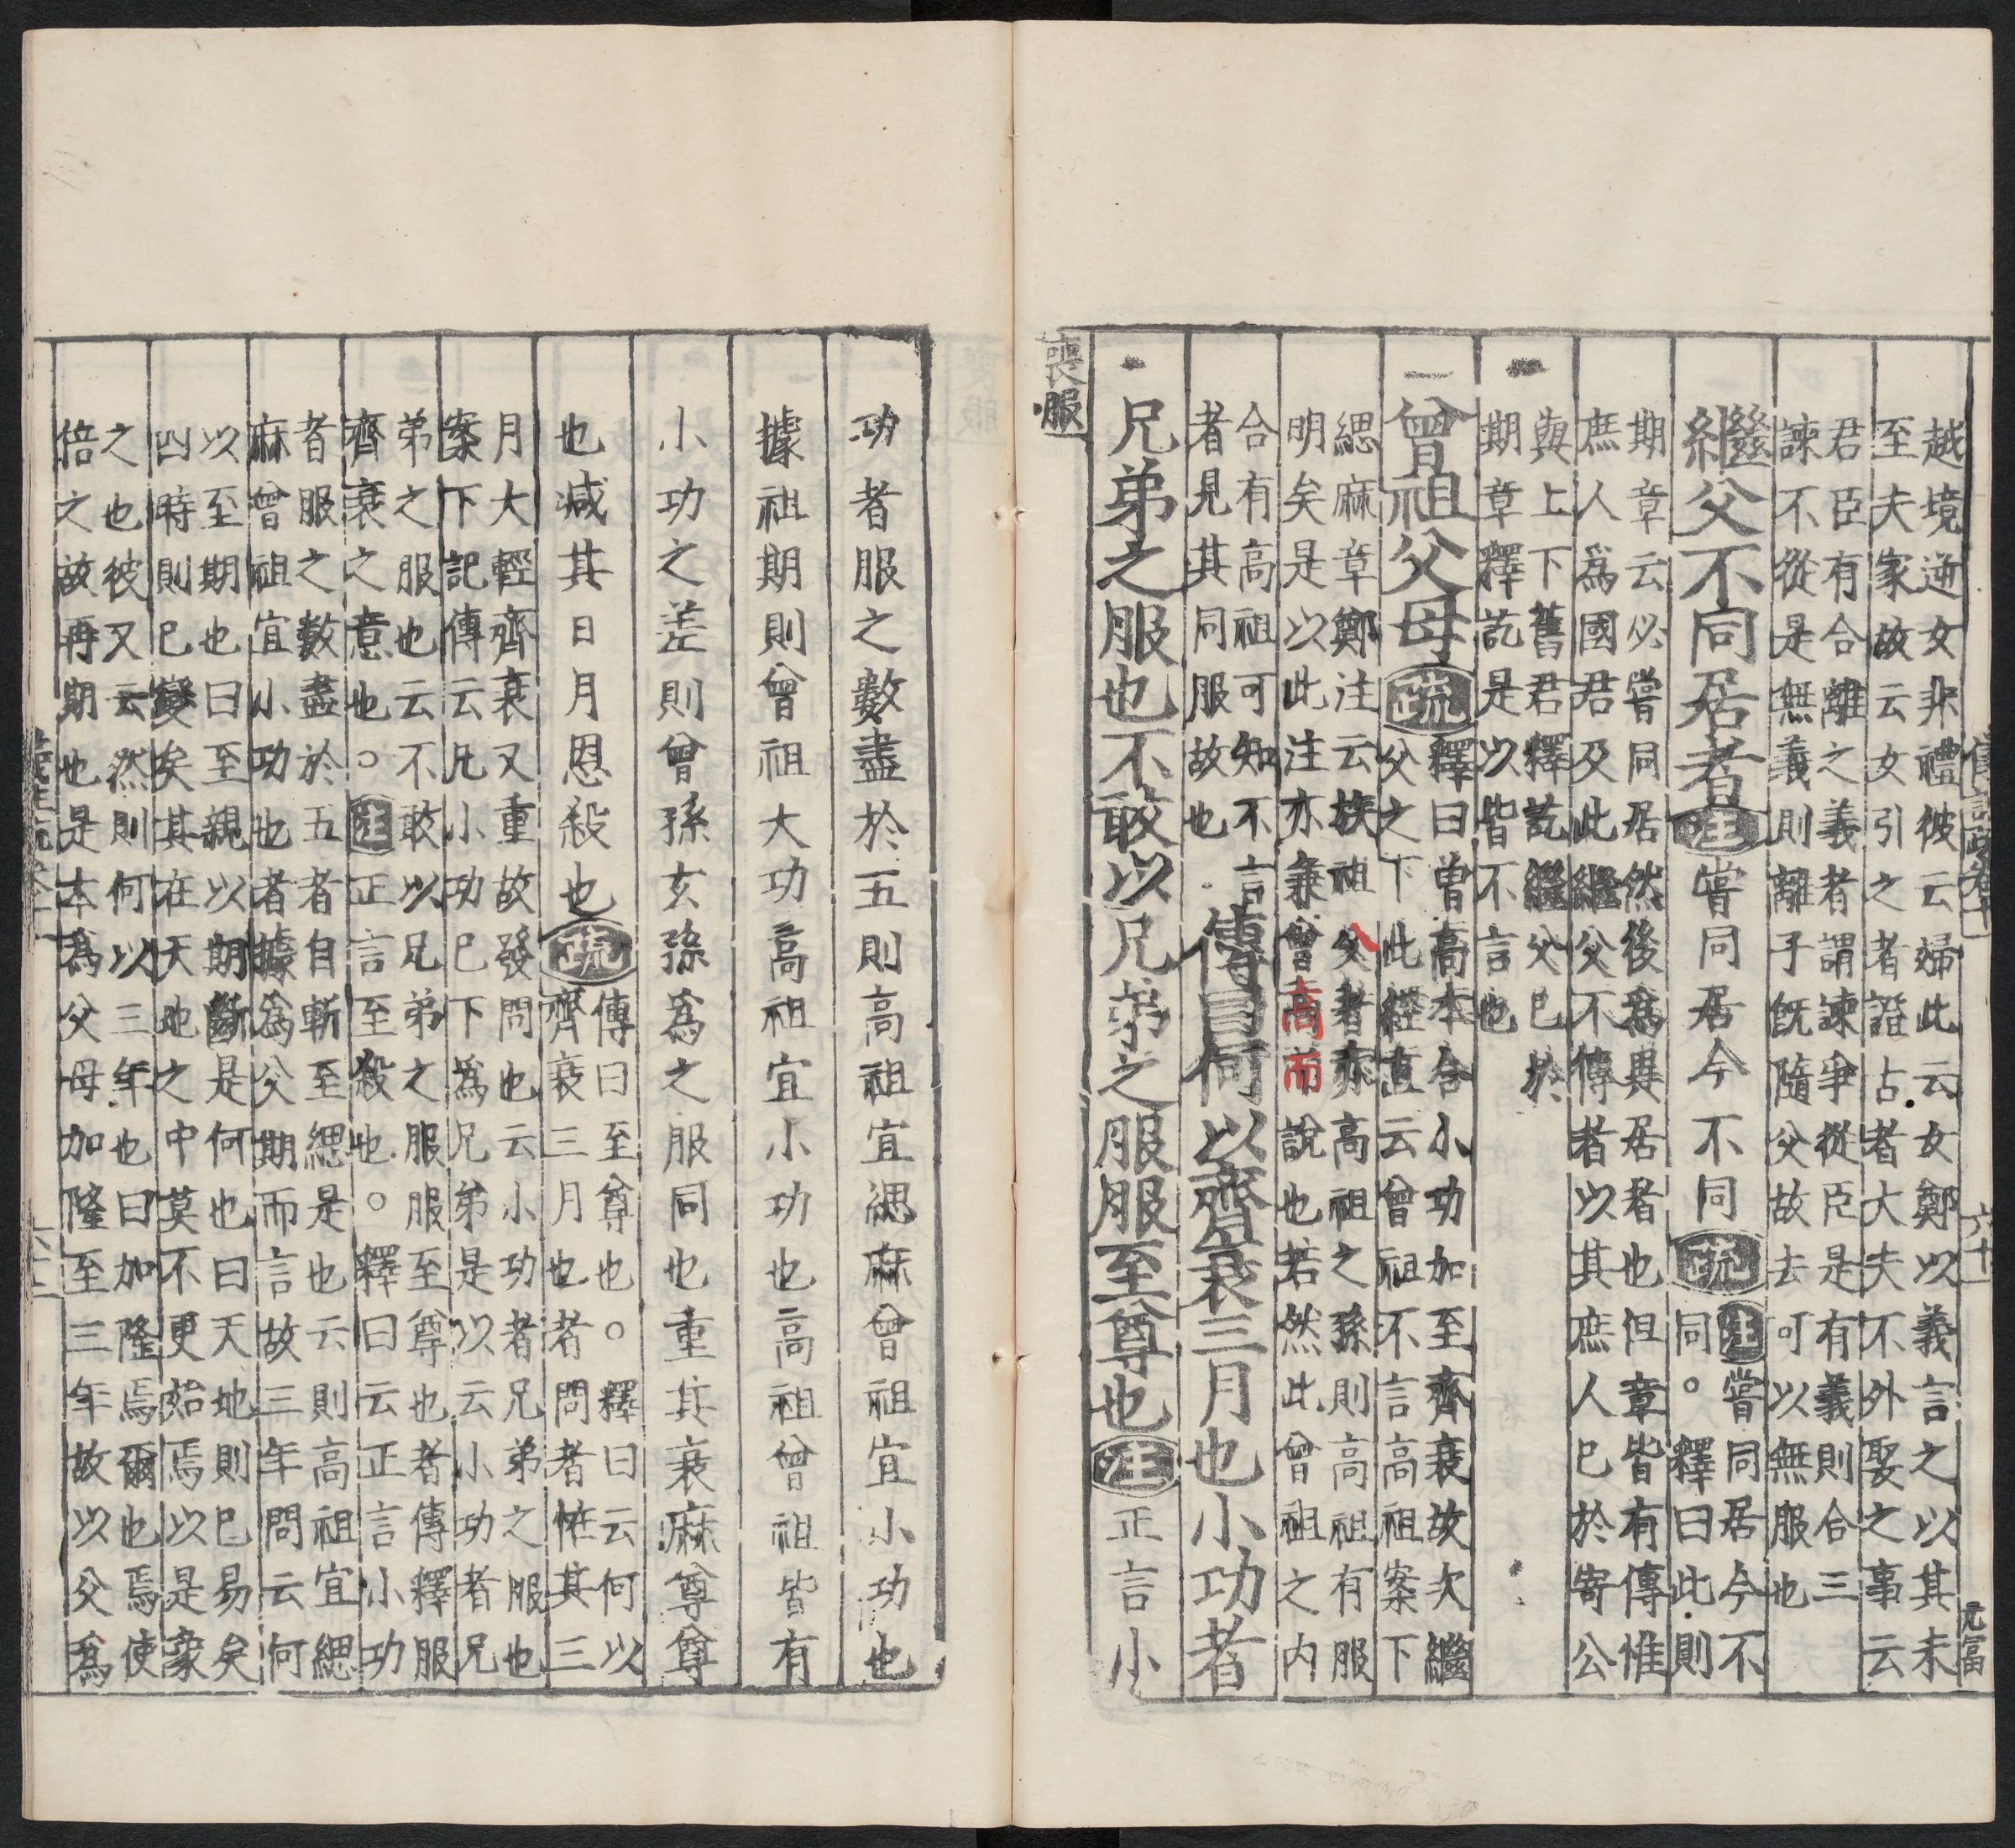 元富
六十一
越境逆女非禮彼云婦此云女鄭以義言之以其未
至夫家故云女引之者證占者大夫不外娶之事云
君臣有合離之義者謂諫爭從臣是有義則合三
諫不從是無義則離子既隨父故去可以無服也
繼父不同居者注嘗同居今不同疏注嘗同居今不
同。釋曰此則
期章云必嘗同居然後爲異居者也但章皆有傳惟
庶人爲國君及此繼父不傳者以其庶人已於寄公
與上下舊君釋訖繼父已於
期章釋訖是以皆不言也
曾祖父母疏釋曰曾高本合小功加至齊衰故次繼
父之下此經直云曾祖不言高祖案下
緦麻章鄭注云族祖父者亦高祖之孫則高祖有服
明矣是以此注亦兼曾高而說也若然此曾祖之内
合有高祖可知不言
者見其同服故也
傳曰何以齊衰三月也小功者
兄弟之服也不敢以兄弟之服服至尊也注正言小
喪服
功者服之數盡於五則高祖宜緦麻曾祖宜小功也
據祖期則曾祖大功高祖宜小功也高祖曾祖皆有
小功之差則曾孫玄孫爲之服同也重其衰麻尊尊
也减其日月恩殺也疏傳曰至尊也。釋曰云何以
齊衰三月也者問者恠其三
月大輕齊衰又重故發問也云小功者兄弟之服也
案下記傳云兄小功已下爲兄弟是以云小功者兄
弟之服也云不敢以兄弟之服服至尊也者傳釋服
齊衰之意也。注正言至殺也。釋曰云正言小功
者服之數盡於五者自斬至緦是也云則高祖宜緦
麻曾祖宜小功也者據爲父期而言故三年問云何
以至期也曰至親以期斷是何也曰天地則已易矣
四時則已變矣其在天地之中莫不更始焉以是象
之也彼又云然則何以三年也曰加隆焉爾也焉使
倍之故再期也是本爲父母加隆至三年故以父爲